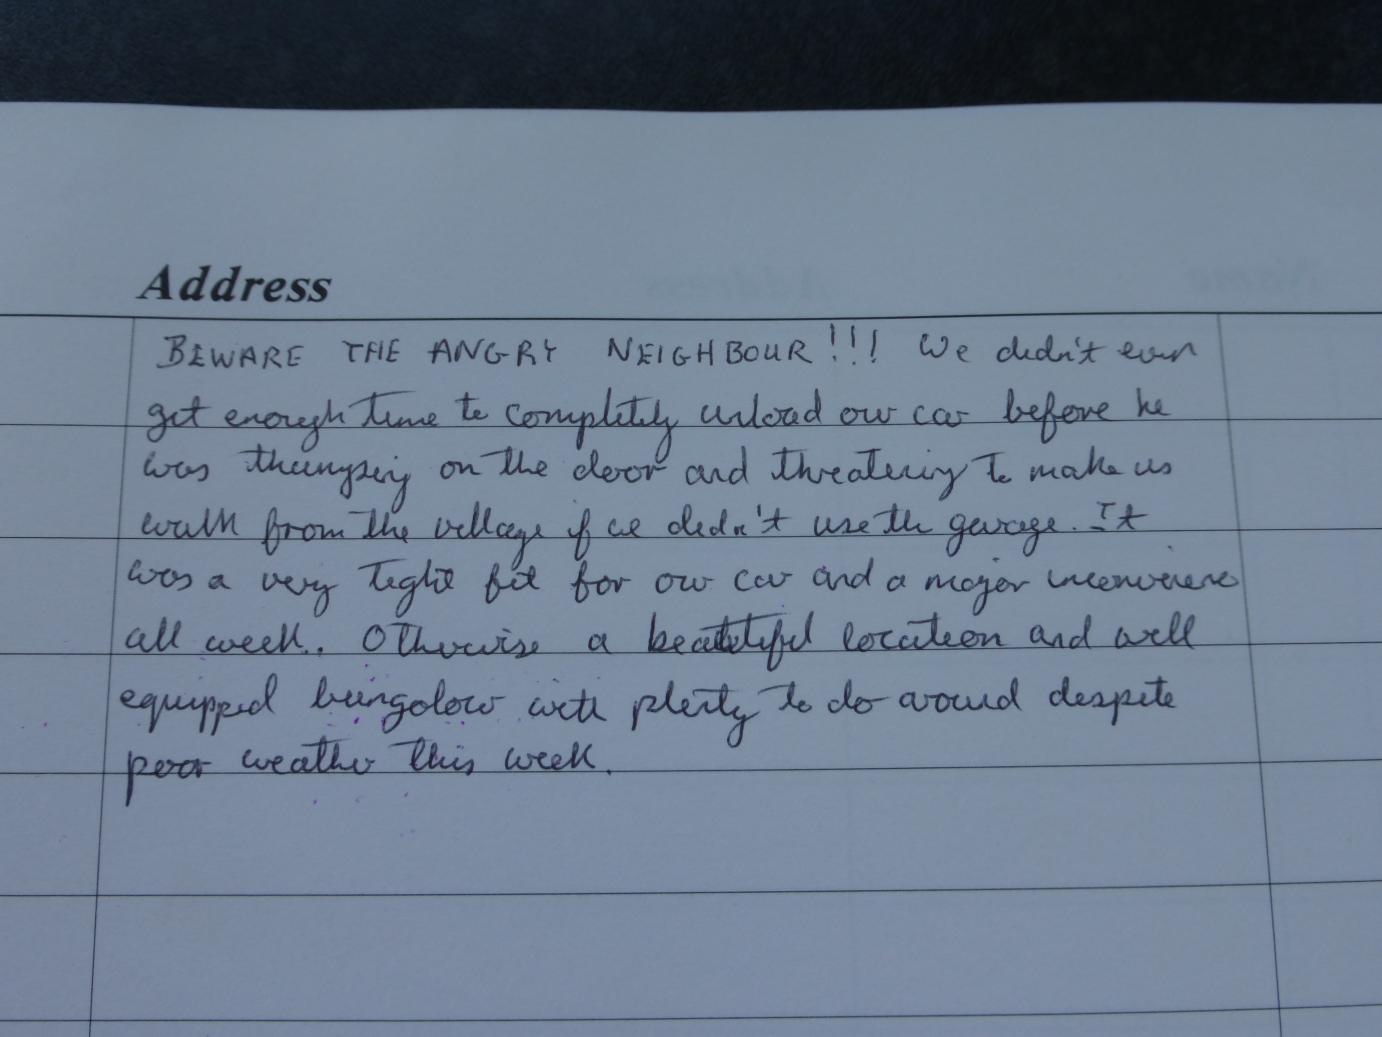 Address
BEWARE THE ANGRY NEIGHBOUR!!! We didn't even
get enough time to completely unload our car before he
was thumping on the door and threatening to make us
walk from the village if we didn't use the garage. It
was a very tight fit for our car and a major
all week. Otherwise a beautiful location and well
equipped bungolow with plenty to do around despite
poor weather this week.